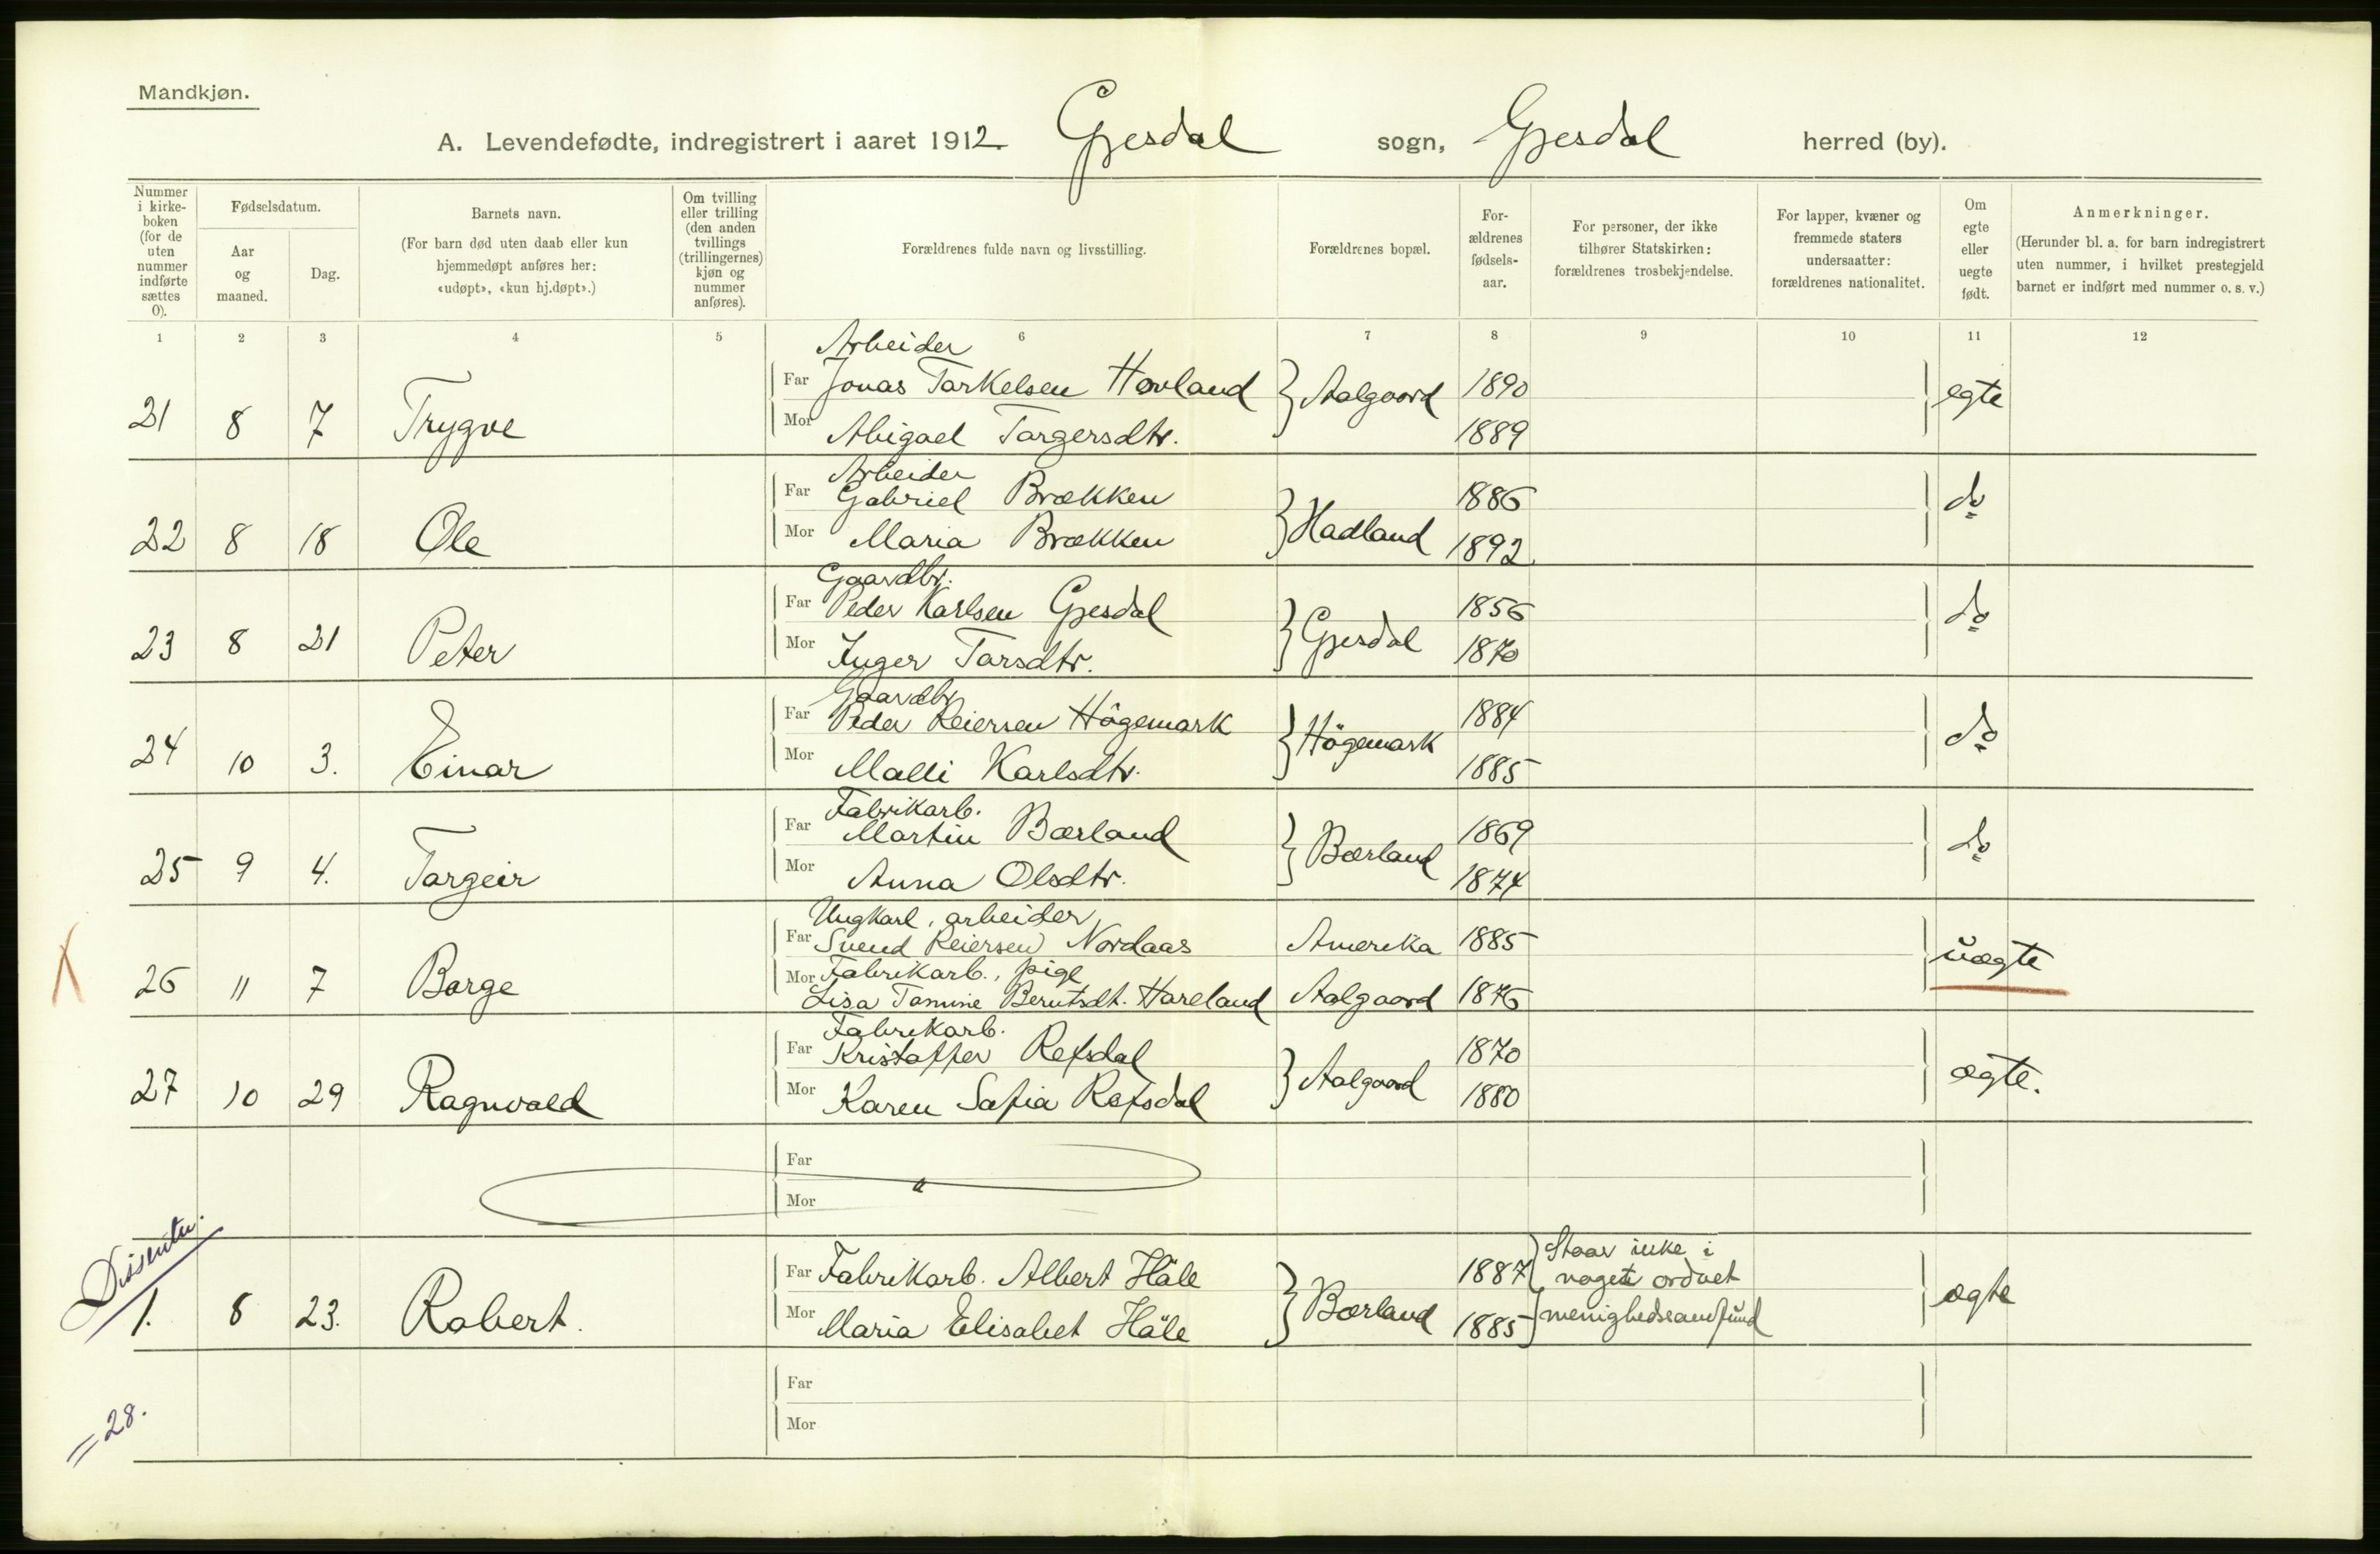 Mandkjøn.
A. Levendefødte, indregistrert i aaret 1912. Gjesdal sogn, Gjesdal herred (by).
Nummer i kirke-boken (for de uten nummer indførte sættes 0).
Fødselsdatum.
Aar og maaned.
Dag.
Barnets navn.
(For barn død uten daab eller kun hjemmedøpt anføres her: «udøpt», «kun hj.døpt».)
Om tvilling eller trilling (den anden tvillings (trillingernes) kjøn og nummer anføres).
Forældrenes fulde navn og livsstilling.
Forældrenes bopæl.
For-ældrenes fødsels-aar.
For personer, der ikke tilhører Statskirken: forældrenes trosbekjendelse.
For lapper, kvæner og fremmede staters undersaatter: forældrenes nationalitet.
Om egte eller uegte født.
Anmerkninger.
(Herunder bl. a. for barn indregistrert uten nummer, i hvilket prestegjeld barnet er indført med nummer o. s. v.)
1 2 3 4 5 6 7 8 9 10 11 12
Arbeider
21 8 7 Trygve Far Jonas Tarkelsen Hovland Aalgaard 1890 egte
Mor Abigael Targersdtr. 1889
Arbeider
22 8 18 Ole Far Gabriel Brækken Hadland 1886 do
Mor Maria Brækken 1892
Gaardbr.
23 8 21 Peter Far Peder Karlsen Gjesdal Gjesdal 1856 do
Mor Inger Tarsdtr. 1870
Gaardbr
24 10 3. Einar Far Peder Reiersen Högemark Högemark 1884 do
Mor Malli Karlsdtr. 1885
Fabrikarb.
25 9 4. Targeir Far Martin Bærland Bærland 1869 do
Mor Anna Olsdtr. 1874
Ungkarl, arbeider
26 11 7 Borge Far Svend Reiersen Nordaas Amerika 1885 uægte
Mor Fabrikarb., pige
Lisa Tomine Berntsdt. Hareland Aalgaard 1876
Fabrikarb.
27 10 29 Ragnvald Far Kristoffer Refsdal Aalgaard 1870 ægte.
Mor Karen Sofia Refsdal 1880
Far
Mor
Dissenter.
1. 8 23. Robert. Far Fabrikarb. Albert Håle Bærland 1887 Staar ikke i noget ordnet ægte
Mor Maria Elisabet Håle 1885 menighedssamfund
Far
Mor
=28.